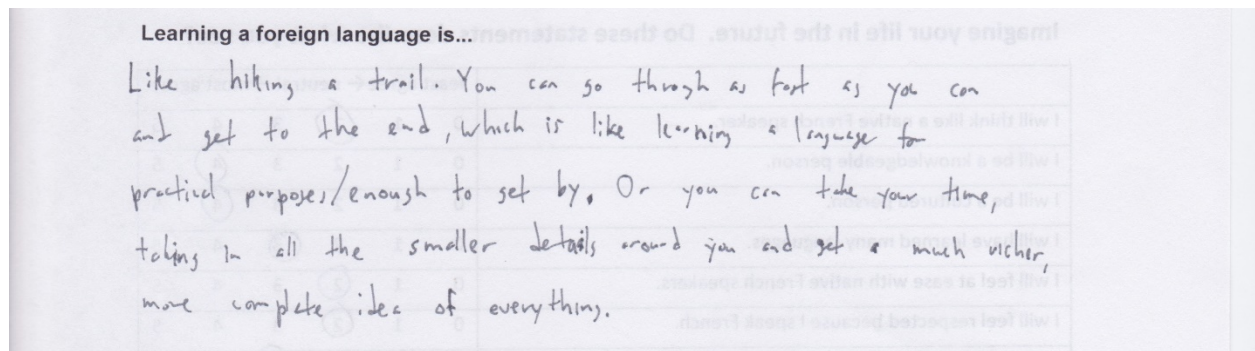 Learning a foreign language is...
Like hiking a trail. You can go through as fast as you can
and get to the end, which is like learning a language for
practical purposes/enough to get by. Or you can take your time,
taking in all the smaller details around you and get a much richer,
more complete idea of everything.